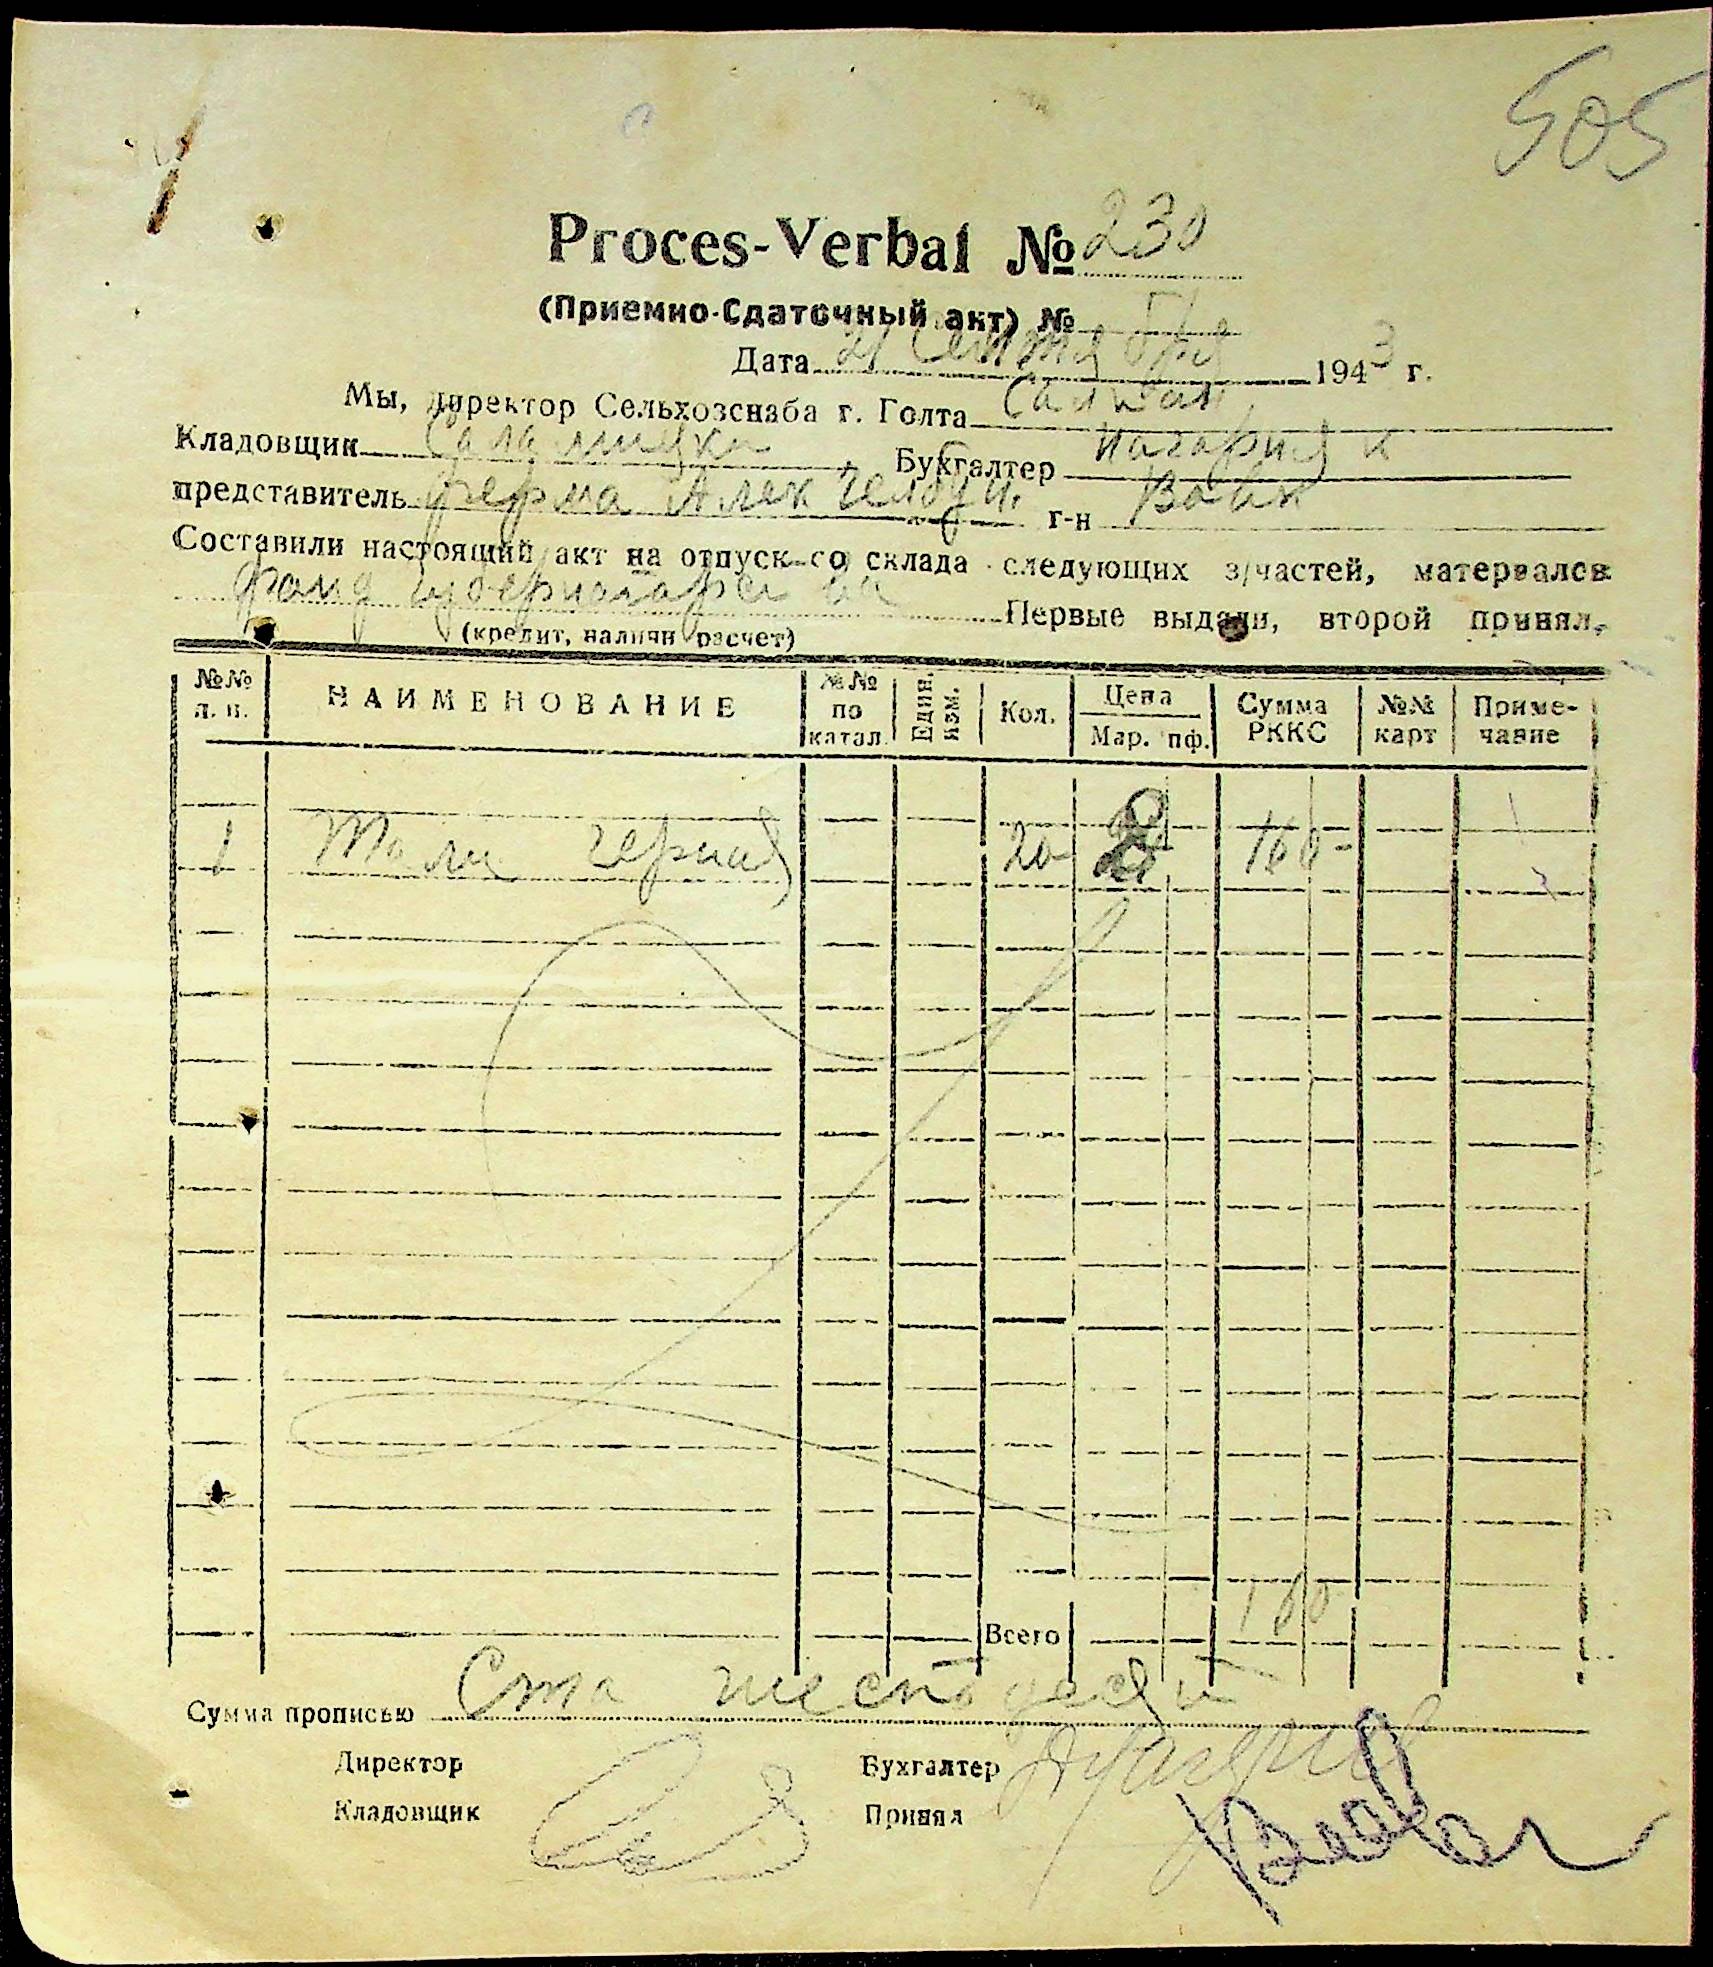 505
Proces-Verbal № 230
(Приемно-Сдаточный акт) №
Дата 21 Сентября 1943 г.
Мы, директор Сельхозснаба г. Голта
Кладовщик Бухгалтер
представитель ферма г-н Вовк
Составили настоящий акт на отпуск со склада следующих з/частей, материалов
фонд Губернаторства Первые выдали, второй принял.
(кредит, наличн расчет)
№№ п. п. НАИМЕНОВАНИЕ №№ по катал. Един. изм. Кол. Цена Мар. пф. Сумма РККС №№ карт Приме-чание
1 Толи черной 20 8 160-
Всего 160
Сумма прописью Сто шестьдесят
Директор Бухгалтер
Кладовщик Принял